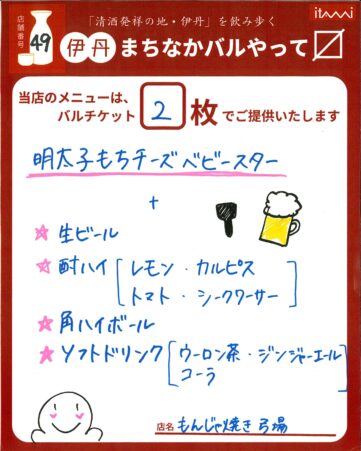 店舗番号
49
「清酒発祥の地・伊丹」を飲み歩く
itami
伊丹まちなかバルやって〼
当店のメニューは、
バルチケット 2 枚でご提供いたします
明太子もちチーズベビースター
+
☆生ビール
☆酎ハイ [レモン・カルピス
トマト・シークワーサー]
☆角ハイボール
☆ソフトドリンク [ウーロン茶・ジンジャーエール
コーラ]
店名 もんじゃ焼き 弓場